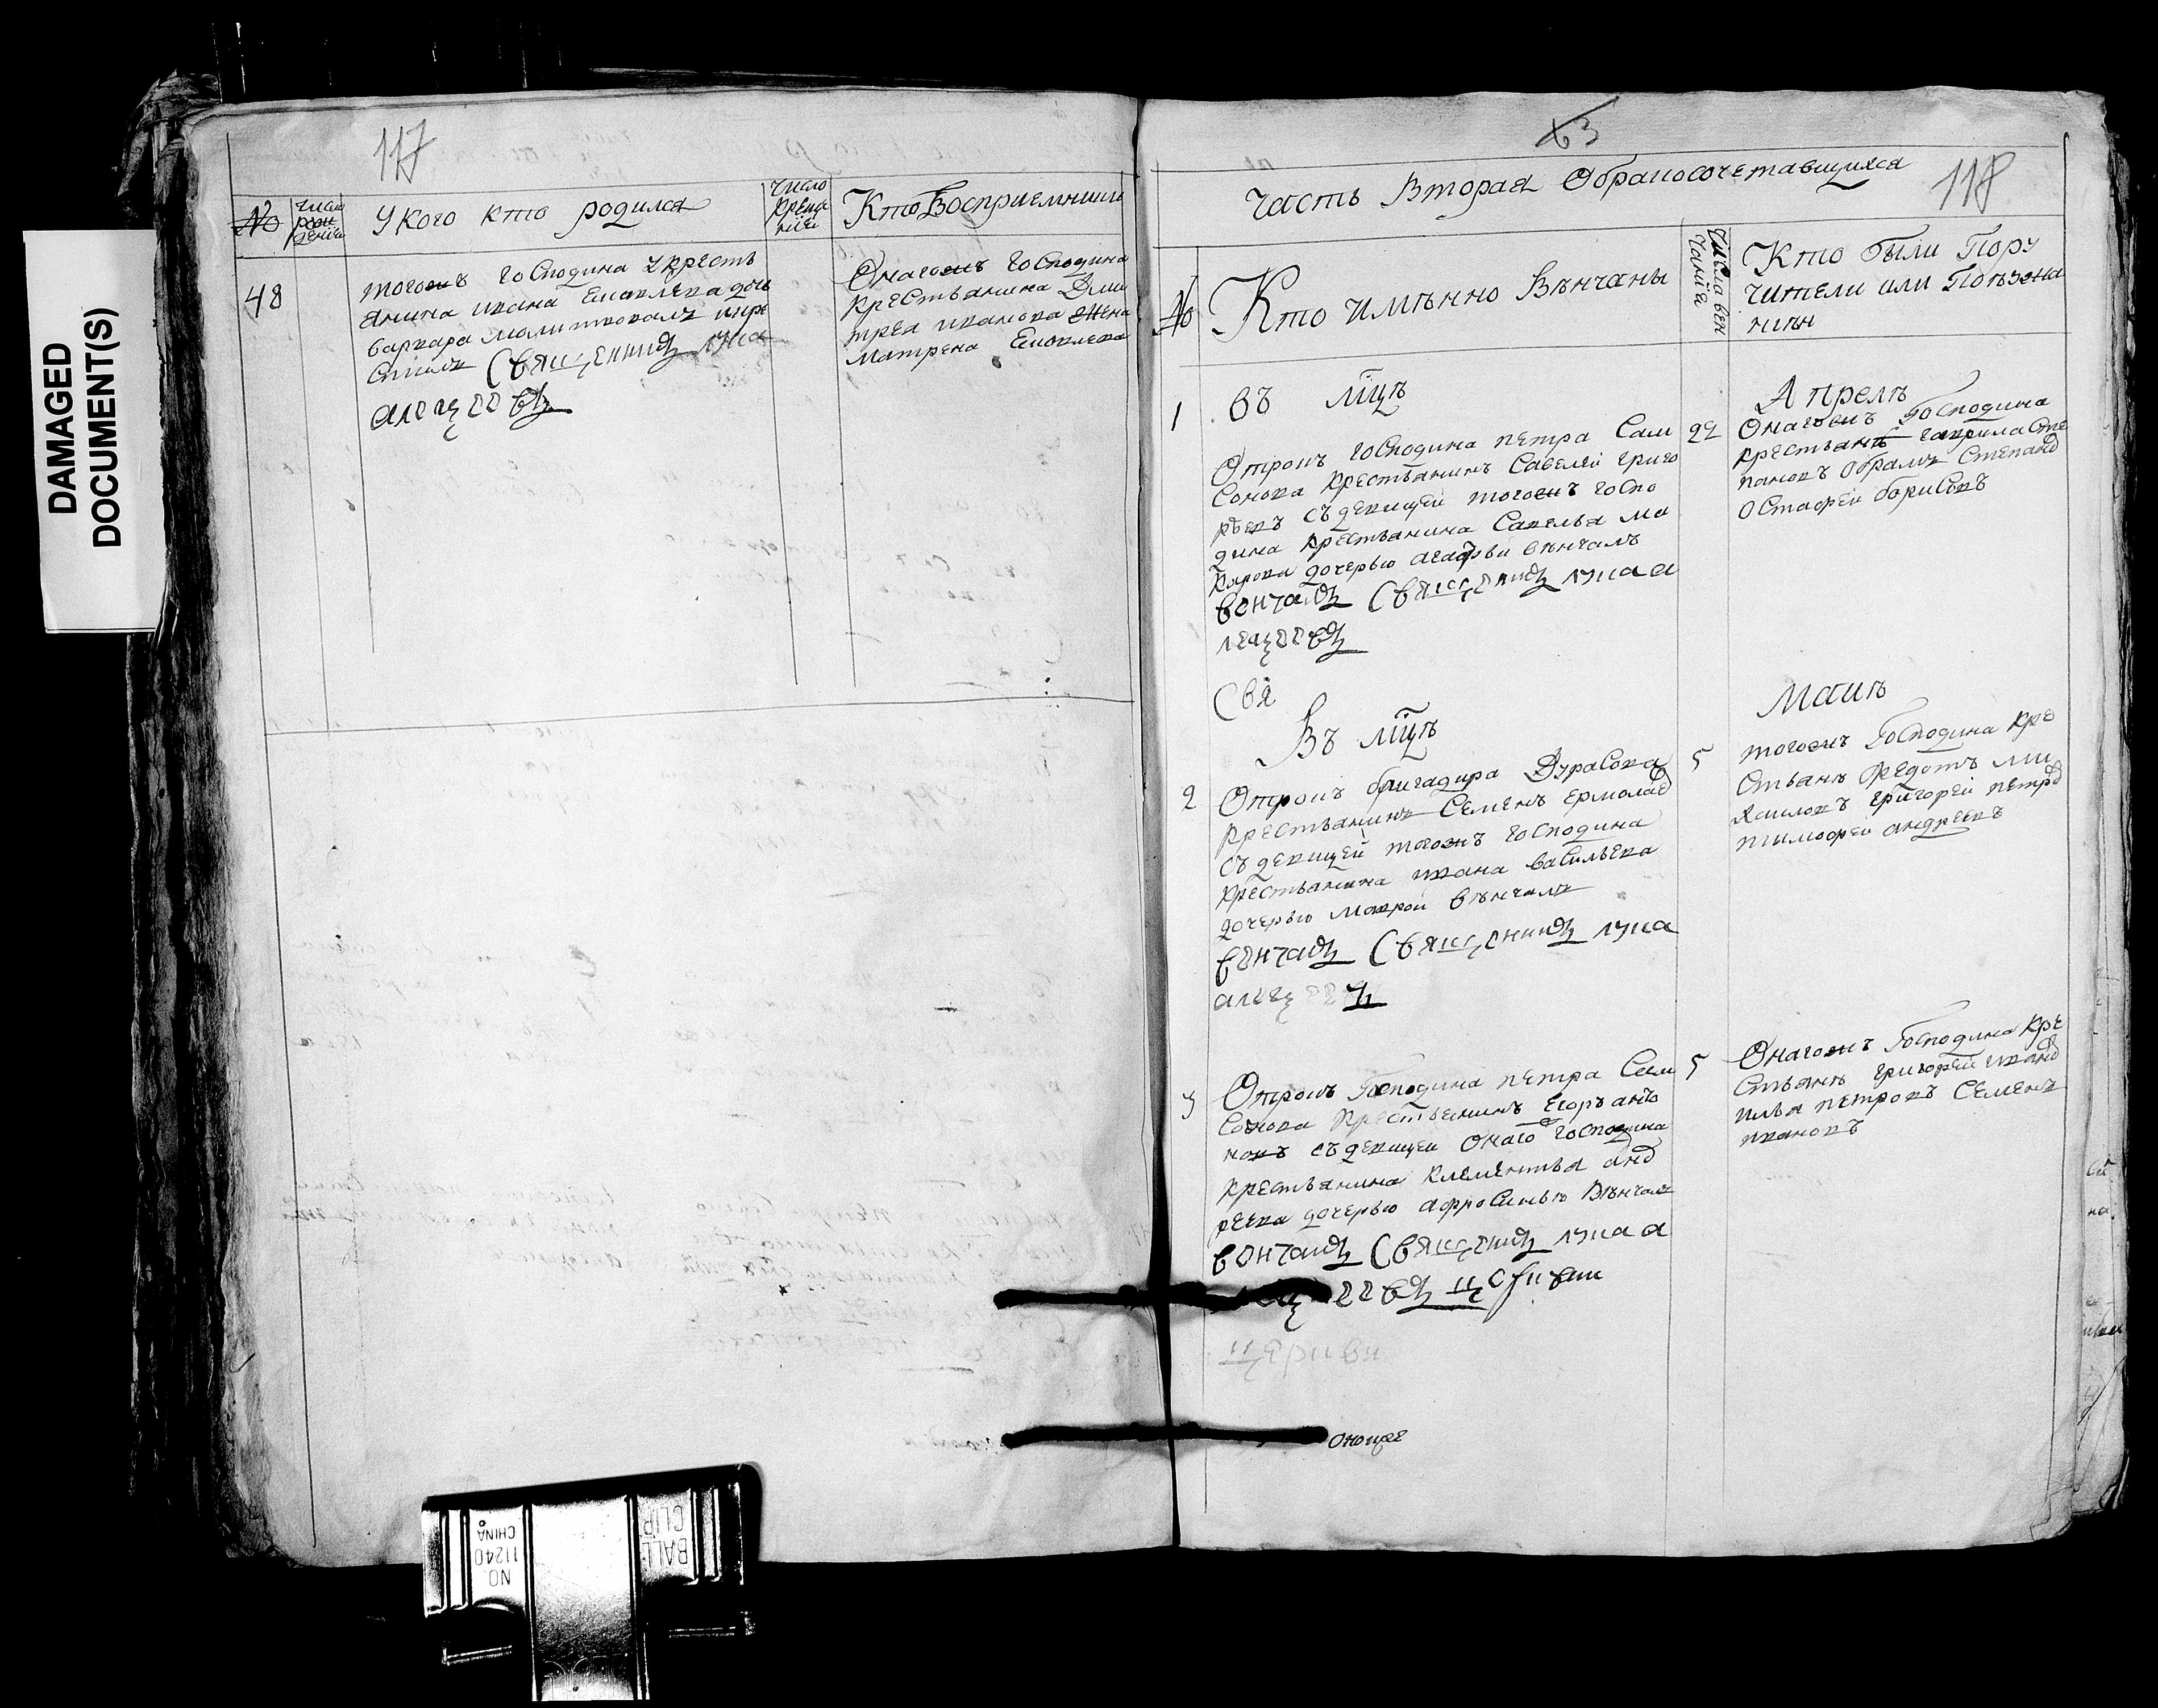 DAMAGED
DOCUMENT(S)
117
№
число рождения
У кого кто родился
число крещения
Кто восприемники
48
тогожъ господина укресть
янина ивана яковлева дочь
варвара молитвовалъ икре
стилъ Священникъ лука
алексеевъ
Онагожъ господина
крестьянина Дми
трея иванова жена
матрена яковлева
63
118
Часть Вторая Обракосочетавшихся
№
Кто имѣнно Вѣнчаны
числа вен
чания
Кто были Пору
чители или Поезжа
1
Въ мцѣ
Апрелѣ
Отрокъ господина петра Сам
сонова крестьянинъ Савелей григо
рьевъ съдевицей тогожъ госпо
дина крестьянина Савелья ма
карова дочерью агафьи вѣнчалъ
венчалъ Священникъ лука а
лексеевъ
22
Онагожъ Господина
крестьянѣ гаврила Сте
пановъ Степанъ
Остафей борисовъ
Свя
Въ мцѣ
Маиѣ
2
Отрокъ бригадира Дурасова
крестьянинъ Семенъ ермолаев
съ девицей тогожъ господина
крестьянина ивана васильева
дочерью маврой вѣнчалъ
венчалъ Священникъ лука
алексеевъ
5
тогожъ Господина кре
стьянѣ федотъ ми
хаиловъ григорей петров
тимофей андреевъ
3
Отрокъ Господина петра Сам
сонова крестьянинъ Егоръ анто
новъ съдевицей Онаго господина
крестьянина клементья анд
реева дочерью афросинью Вѣнчалъ
венчалъ Священникъ лука а
ексеевъ
церкви
5
Онагожъ Господина кре
стьянѣ григорей иванов
илья петровъ Семенъ
ивановъ
NO.
11240
CHINA
BALL
CLIP